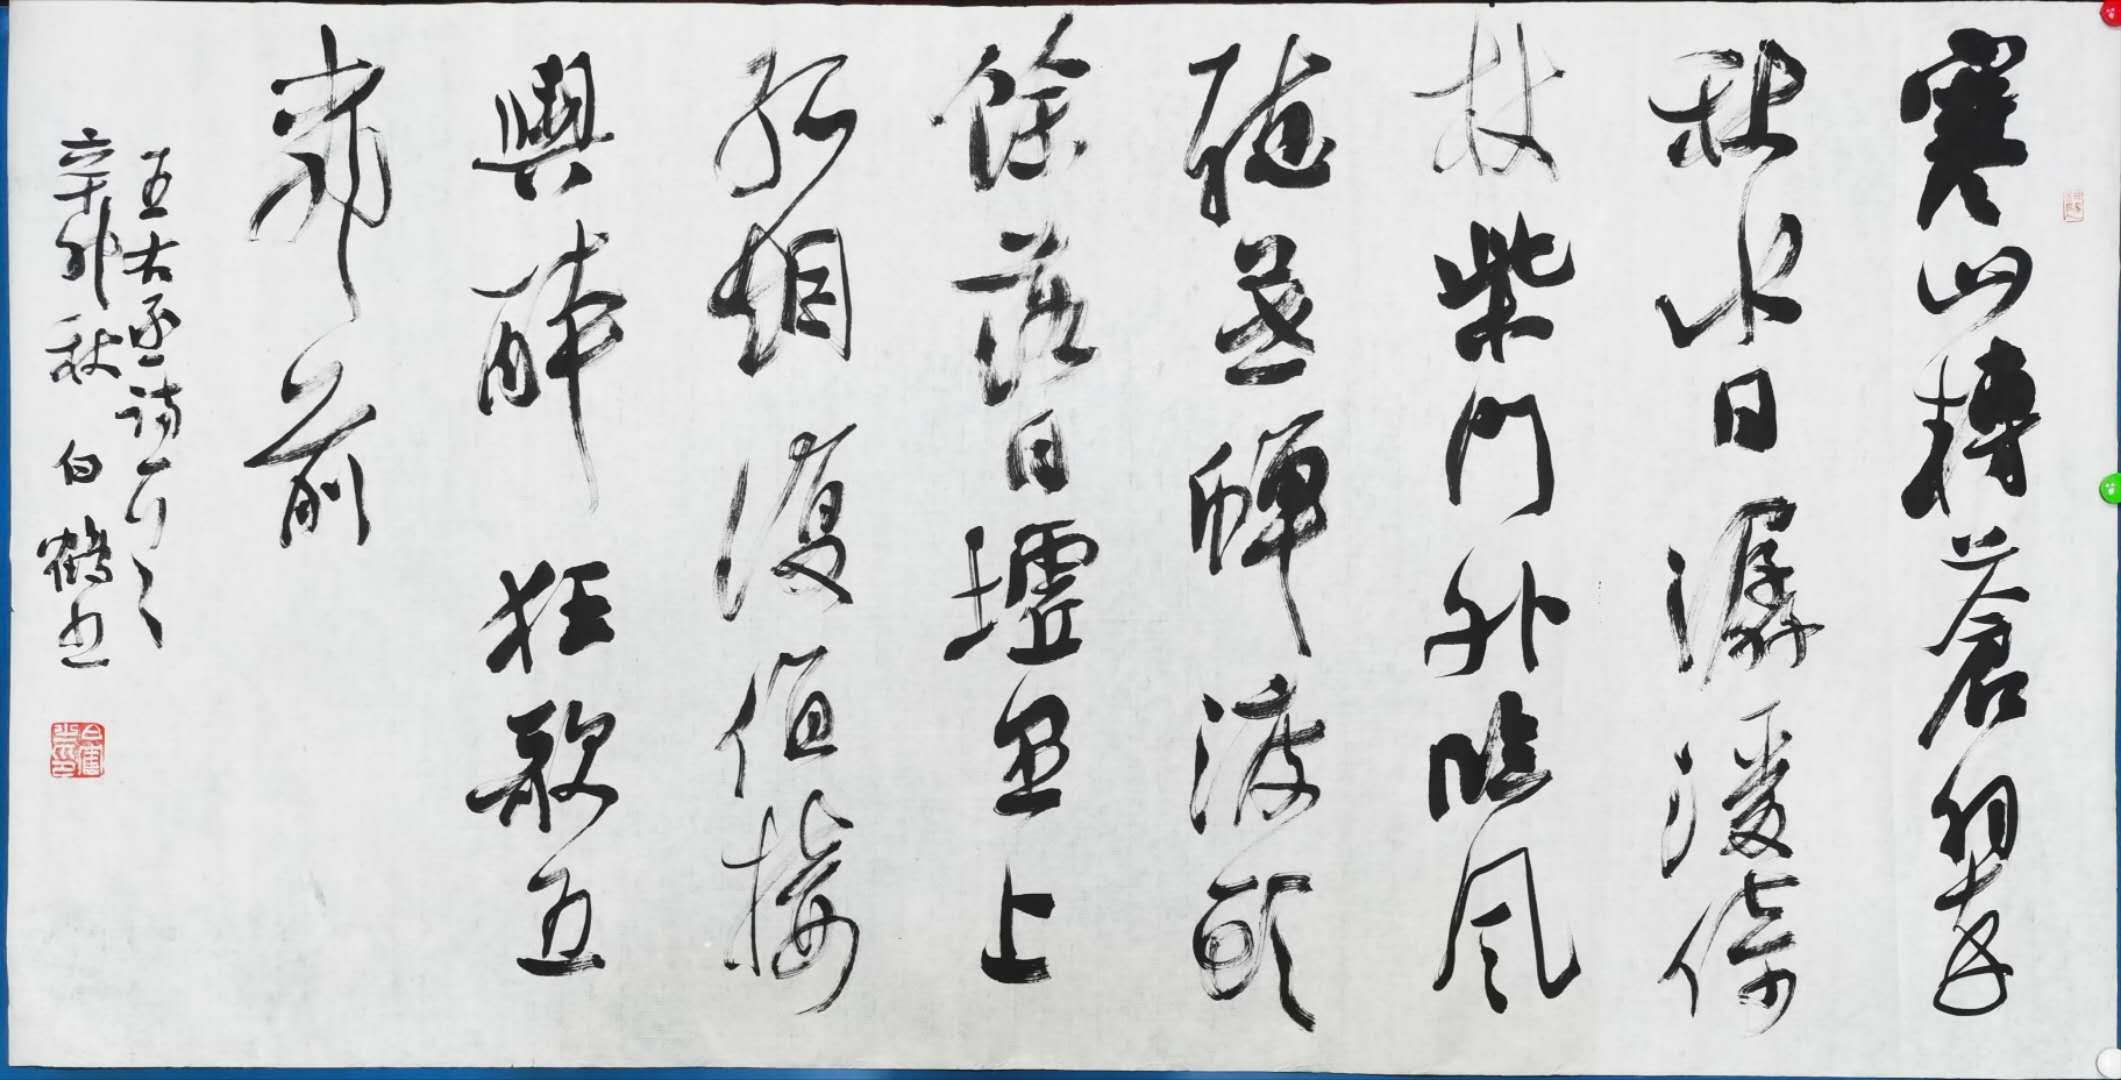 寒山轉蒼翠
秋水日潺湲倚
杖柴門外臨風
聽暮蟬渡頭
餘落日墟里上
孤烟復值接
輿醉狂歌五
柳前
王右丞詩一首
辛卯秋 白鶴书